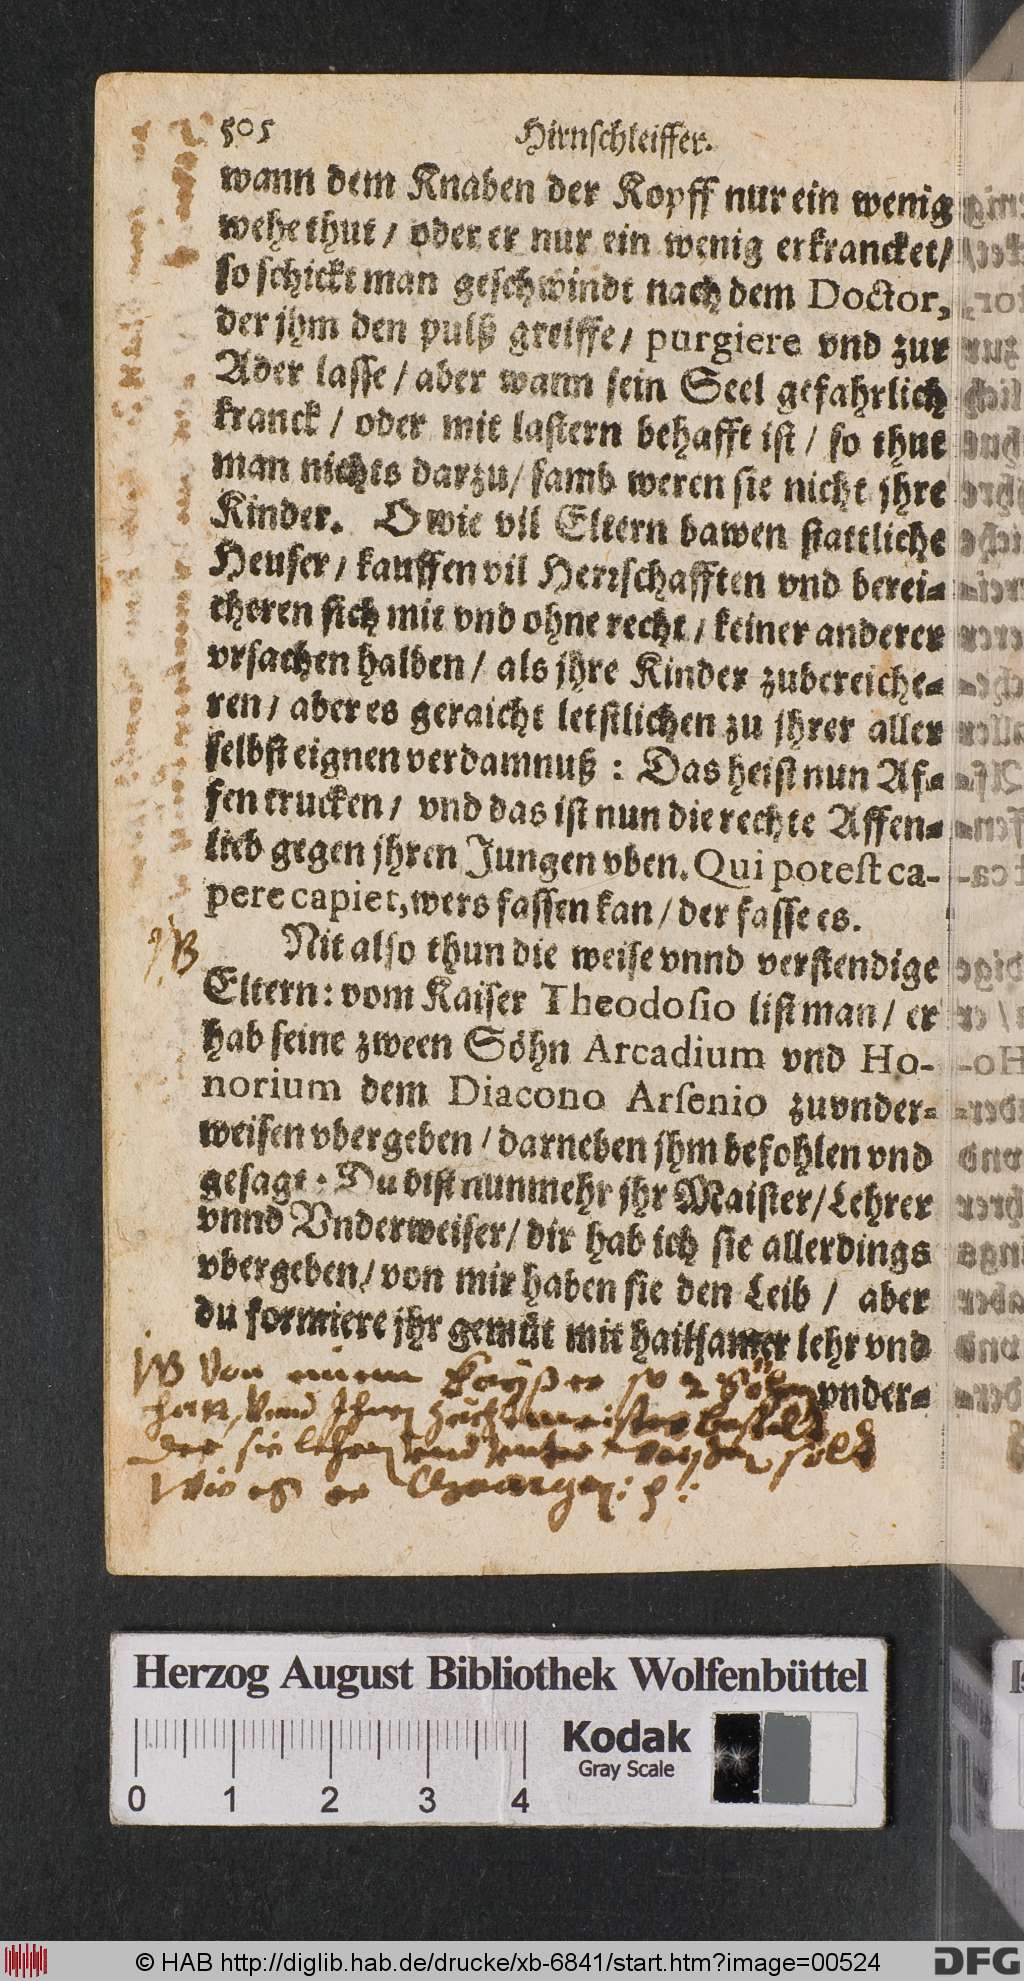 505 Hirnschleiffer.
wann dem Knaben der Kopff nur ein wenig
wehe thut / oder er nur ein wenig erkrancket /
so schickt man geschwindt nach dem Doctor,
der jhm den pulß greiffe / purgiere vnd zur
Ader lasse / aber wann sein Seel gefahrlich
kranck / oder mit lastern behafft ist / so thut
man nichts darzu / samb weren sie nicht jhre
Kinder. O wie vil Eltern bawen stattliche
Heuser / kauffen vil Herrschafften vnd berei-
cheren sich mit vnd ohne recht / keiner anderer
vrsachen halben / als jhre Kinder zubereiche-
ren / aber es geraicht letstlichen zu jhrer aller
selbst eignen verdamnuß : Das heist nun Af-
fen trucken / vnd das ist nun die rechte Affen-
lieb gegen jhren Jungen vben. Qui potest ca-
pere capiet, wers fassen kan / der fasse es.
NB
Nit also thun die weise vnnd verstendige
Eltern : vom Kaiser Theodosio list man / er
hab seine zween Söhn Arcadium vnd Ho-
norium dem Diacono Arsenio zuvnder-
weisen vbergeben / darneben jhm befohlen vnd
gesagt : Du bist nunmehr jhr Maister / Lehrer
vnnd Vnderweiser / dir hab ich sie allerdings
vbergeben / von mir haben sie den Leib / aber
du formiere jhr gemüt mit hailsamer lehr vnd
vnder-
NB Von einem Kayßer so 2 Söhn
der sie lehren vnd soll
Wie es er
Herzog August Bibliothek Wolfenbüttel
Kodak
Gray Scale
0 1 2 3 4
© HAB http://diglib.hab.de/drucke/xb-6841/start.htm?image=00524
DFG